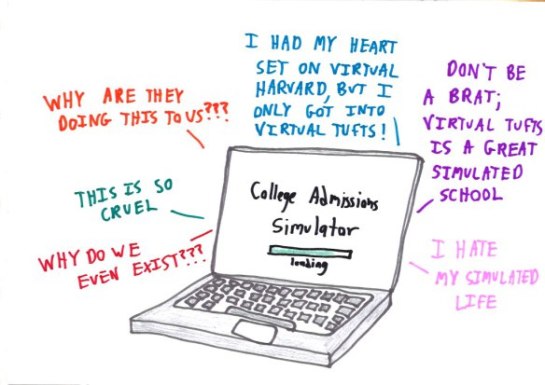 I HAD MY HEART
SET ON VIRTUAL
HARVARD, BUT I
ONLY GOT INTO
VIRTUAL TUFTS!
DON'T BE
A BRAT;
VIRTUAL TUFTS
IS A GREAT
SIMULATED
SCHOOL
WHY ARE THEY
DOING THIS TO US???
THIS IS SO
CRUEL
WHY DO WE
EVEN EXIST???
College Admissions
Simulator
loading
I HATE
MY SIMULATED
LIFE